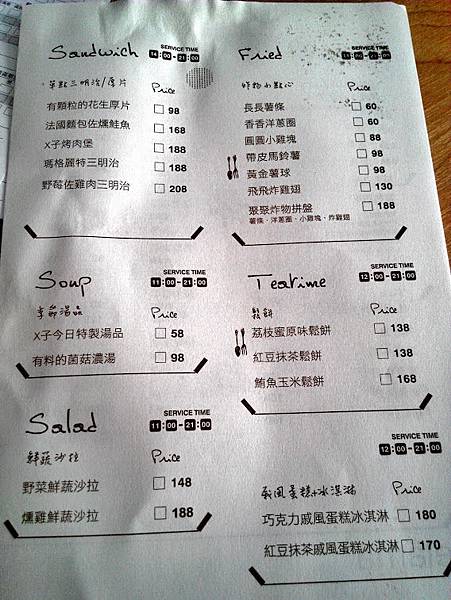 Sandwich
SERVICE TIME
14:00-21:00
單點三明治/厚片 Price
有顆粒的花生厚片 98
法國麵包佐燻鮭魚 168
X子烤肉堡 188
瑪格麗特三明治 188
野莓佐雞肉三明治 208
Soup
SERVICE TIME
11:00-21:00
季節湯品 Price
X子今日特製湯品 58
有料的菌菇濃湯 98
Salad
SERVICE TIME
11:00-21:00
鮮蔬沙拉 Price
野菜鮮蔬沙拉 148
燻雞鮮蔬沙拉 188
Fried
SERVICE TIME
11:00-21:00
炸物小點心 Price
長長薯條 60
香香洋蔥圈 60
圓圓小雞塊 88
帶皮馬鈴薯 98
黃金薯球 98
飛飛炸雞翅 130
聚聚炸物拼盤 188
薯條、洋蔥圈、小雞塊、炸雞翅
Teatime
SERVICE TIME
12:00-21:00
鬆餅 Price
荔枝蜜原味鬆餅 138
紅豆抹茶鬆餅 138
鮪魚玉米鬆餅 168
SERVICE TIME
12:00-21:00
戚風蛋糕+冰淇淋 Price
巧克力戚風蛋糕冰淇淋 180
紅豆抹茶戚風蛋糕冰淇淋 170